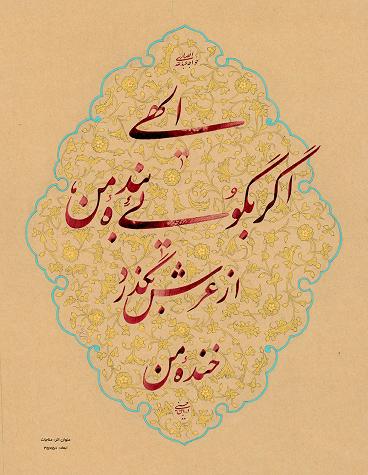 خواجه عبدالله انصاری
الهی
اگر بگوئی بندهٔ من
از عرش بگذرد
خندهٔ من
عنوان اثر: مناجات
ابعاد: